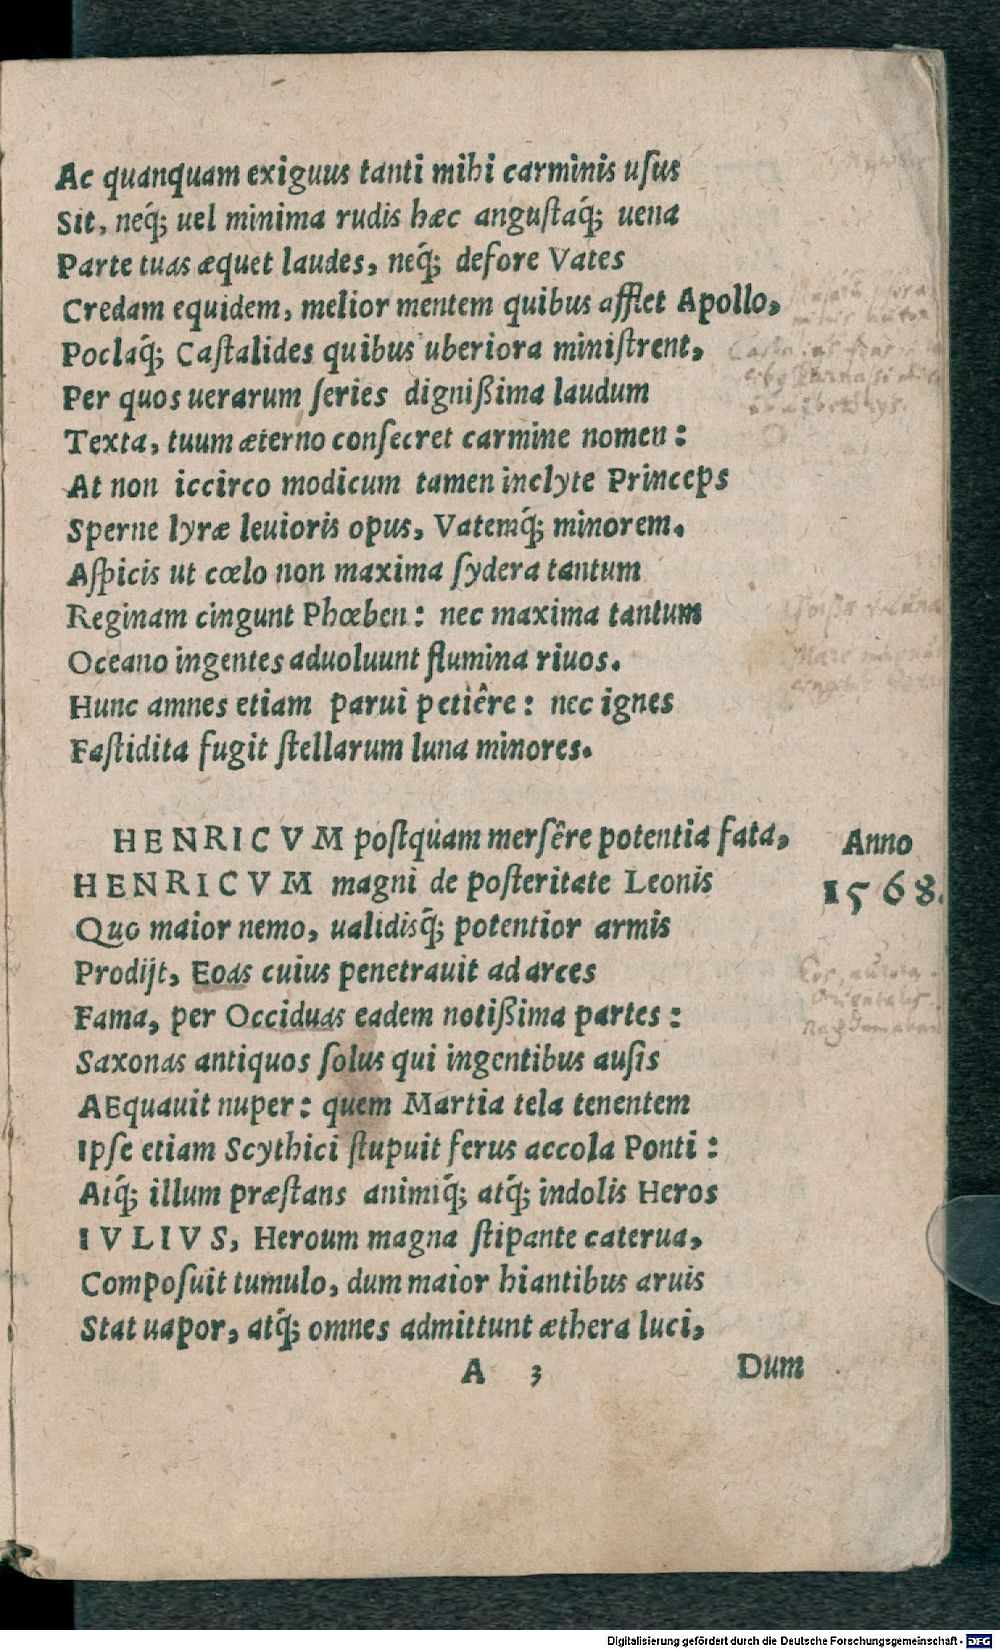 Ac quanquam exiguus tanti mihi carminis uſus
Sit, neq́; uel minima rudis hæc anguſtaq́; uena
Parte tuas æquet laudes, neq́; defore Vates
Credam equidem, melior mentem quibus afflet Apollo,
Poclaq́; Caſtalides quibus uberiora miniſtrent,
Per quos uerarum ſeries dignißima laudum
Texta, tuum æterno conſecret carmine nomen:
At non iccirco modicum tamen inclyte Princeps
Sperne lyræ leuioris opus, Vatemq́; minorem.
Aſpicis ut cœlo non maxima ſydera tantum
Reginam cingunt Phœben: nec maxima tantum
Oceano ingentes aduoluunt flumina riuos.
Hunc amnes etiam parui petiêre: nec ignes
Faſtidita fugit ſtellarum luna minores.
HENRICVM poſtquàm merſêre potentia fata,
Anno
1568.
HENRICVM magni de poſteritate Leonis
Quo maior nemo, ualidisq́; potentior armis
Prodijt, Eoas cuius penetrauit ad arces
Fama, per Occiduas eadem notißima partes:
Saxonas antiquos ſolus qui ingentibus auſis
AEquauit nuper: quem Martia tela tenentem
Ipſe etiam Scythici ſtupuit ferus accola Ponti:
Atq́; illum præſtans animiq́; atq́; indolis Heros
IVLIVS, Heroum magna ſtipante caterua,
Compoſuit tumulo, dum maior hiantibus aruis
Stat uapor, atq́; omnes admittunt æthera luci,
A 3
Dum
Digitalisierung gefördert durch die Deutsche Forschungsgemeinschaft - DFG